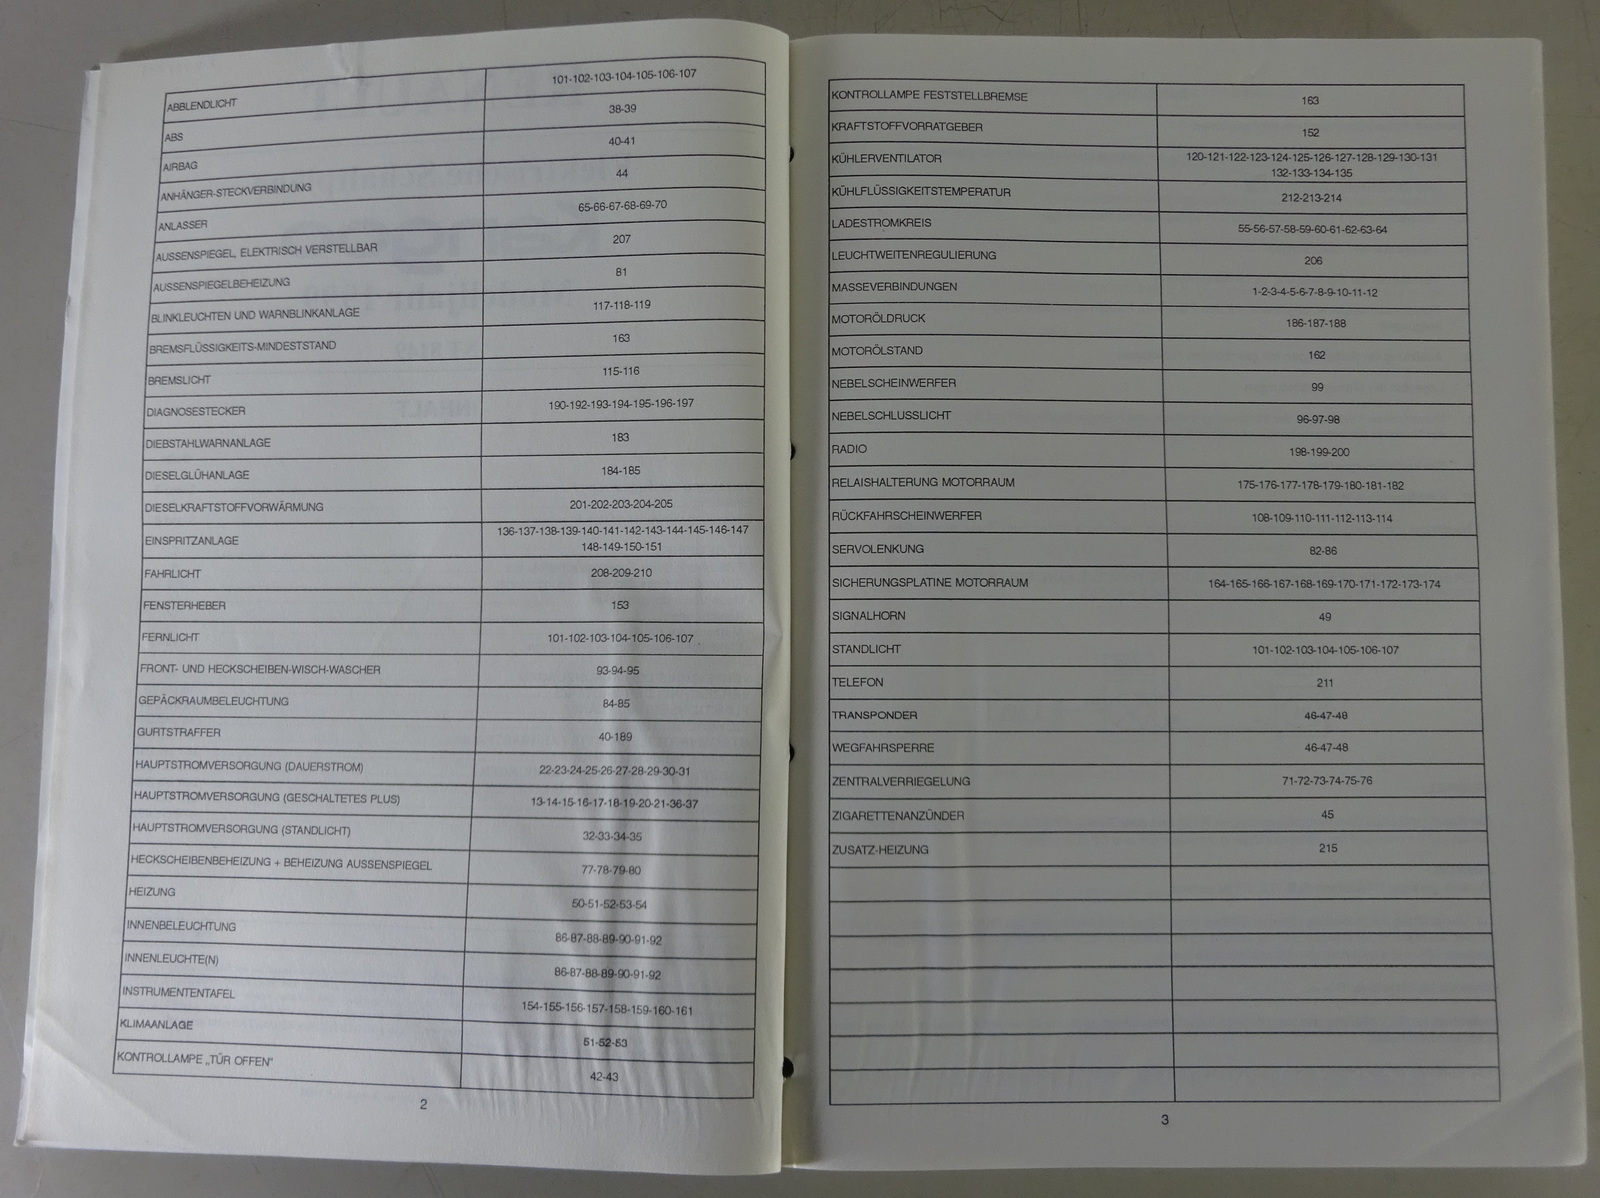 ABBLENDLICHT 101-102-103-104-105-106-107
ABS 38-39
AIRBAG 40-41
ANHÄNGER-STECKVERBINDUNG 44
ANLASSER 65-66-67-68-69-70
AUSSENSPIEGEL, ELEKTRISCH VERSTELLBAR 207
AUSSENSPIEGELBEHEIZUNG 81
BLINKLEUCHTEN UND WARNBLINKANLAGE 117-118-119
BREMSFLÜSSIGKEITS-MINDESTSTAND 163
BREMSLICHT 115-116
DIAGNOSESTECKER 190-192-193-194-195-196-197
DIEBSTAHLWARNANLAGE 183
DIESELGLÜHANLAGE 184-185
DIESELKRAFTSTOFFVORWÄRMUNG 201-202-203-204-205
EINSPRITZANLAGE 136-137-138-139-140-141-142-143-144-145-146-147
148-149-150-151
FAHRLICHT 208-209-210
FENSTERHEBER 153
FERNLICHT 101-102-103-104-105-106-107
FRONT- UND HECKSCHEIBEN-WISCH-WASCHER 93-94-95
GEPÄCKRAUMBELEUCHTUNG 84-85
GURTSTRAFFER 40-189
HAUPTSTROMVERSORGUNG (DAUERSTROM) 22-23-24-25-26-27-28-29-30-31
HAUPTSTROMVERSORGUNG (GESCHALTETES PLUS) 13-14-15-16-17-18-19-20-21-36-37
HAUPTSTROMVERSORGUNG (STANDLICHT) 32-33-34-35
HECKSCHEIBENBEHEIZUNG + BEHEIZUNG AUSSENSPIEGEL 77-78-79-80
HEIZUNG 50-51-52-53-54
INNENBELEUCHTUNG 86-87-88-89-90-91-92
INNENLEUCHTE(N) 86-87-88-89-90-91-92
INSTRUMENTENTAFEL 154-155-156-157-158-159-160-161
KLIMAANLAGE 51-52-53
KONTROLLAMPE „TÜR OFFEN" 42-43
2
KONTROLLAMPE FESTSTELLBREMSE 163
KRAFTSTOFFVORRATGEBER 152
KÜHLERVENTILATOR 120-121-122-123-124-125-126-127-128-129-130-131
132-133-134-135
KÜHLFLÜSSIGKEITSTEMPERATUR 212-213-214
LADESTROMKREIS 55-56-57-58-59-60-61-62-63-64
LEUCHTWEITENREGULIERUNG 206
MASSEVERBINDUNGEN 1-2-3-4-5-6-7-8-9-10-11-12
MOTORÖLDRUCK 186-187-188
MOTORÖLSTAND 162
NEBELSCHEINWERFER 99
NEBELSCHLUSSLICHT 96-97-98
RADIO 198-199-200
RELAISHALTERUNG MOTORRAUM 175-176-177-178-179-180-181-182
RÜCKFAHRSCHEINWERFER 108-109-110-111-112-113-114
SERVOLENKUNG 82-86
SICHERUNGSPLATINE MOTORRAUM 164-165-166-167-168-169-170-171-172-173-174
SIGNALHORN 49
STANDLICHT 101-102-103-104-105-106-107
TELEFON 211
TRANSPONDER 46-47-48
WEGFAHRSPERRE 46-47-48
ZENTRALVERRIEGELUNG 71-72-73-74-75-76
ZIGARETTENANZÜNDER 45
ZUSATZ-HEIZUNG 215
3